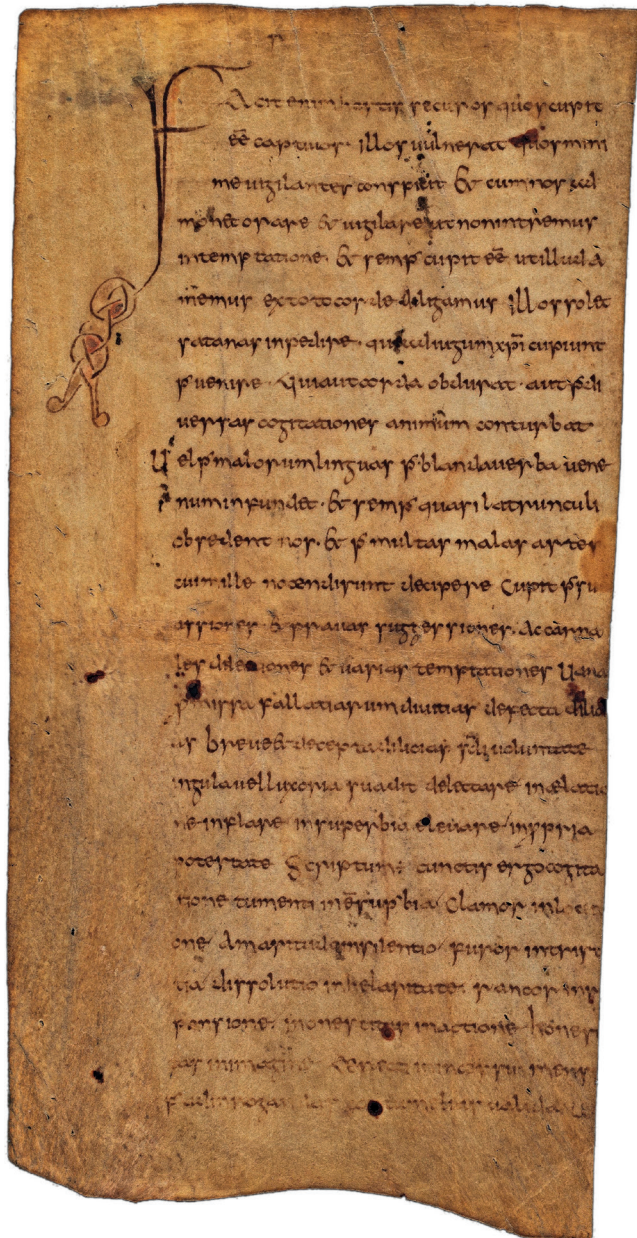 Facit enim hostis secus os quos cupit
eē captiuos. illos uulnerat quos mini
me uigilanter conspicit & cum nos ad
monet orare & uigilare ut non intremus
in temptatione. & semp̄ cupit eē ut illud a
memus ex toto corde diligamus illos solet
satanas inpedire. qui ad iugum xp̄i cupiunt
p̄uenire. Quia aut corda obdurat. aut p̄ di
uersas cogitationes animum conturbat
Uel p̄ malorum linguas p̄ blanda uerba uene
num infundet. & semp̄ quasi latrunculi
obsedent nos. & p̄ multas malas artes
cum ille decipere cupit p̄su
assiones & prauas suggessiones. Ac carna
les & uarias temptationes Uana
p̄missa fallatiarum diuitias defecta
as breue & decepta dilicias uoluntate
in gula uel luxoria suadit delectare in elatio
ne inflare in superbia eleuare in ppria
potestate Scriptum: cunctis ergo cogita
tione tumenti inē sup̄bia Clamor in
one. Amaritud in silentio. furor in trist
tia dissolutio in helaritate. rancor
ponsione. in actione. hones
tas in imagine